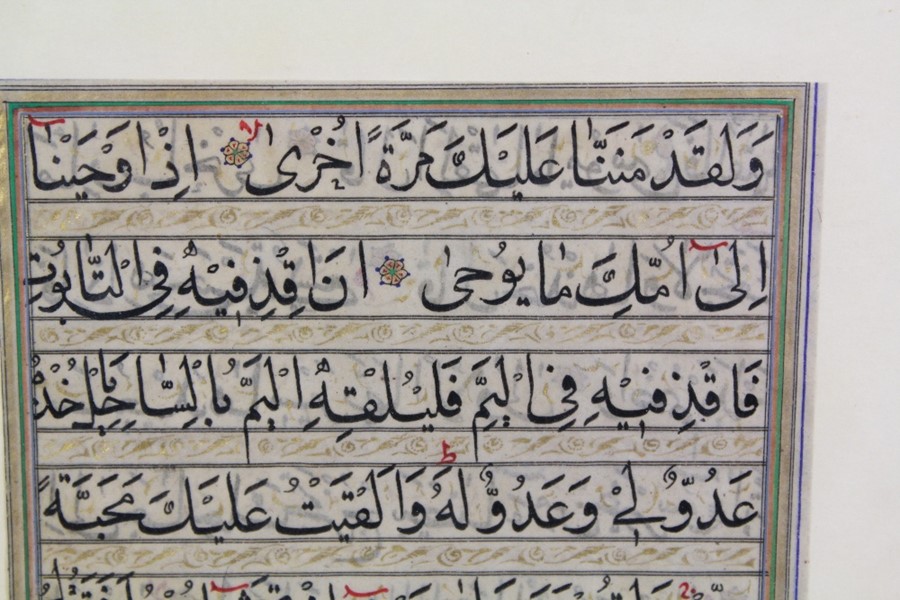 وَلَقَدْ مَنَنَّا عَلَيْكَ مَرَّةً اُخْرٰى لا اِذْ اَوْحَيْنَا
اِلٰى اُمِّكَ مَا يُوحٰى اَنِ اقْذِفِيْهِ فِى التَّابُوتِ
فَاقْذِفِيْهِ فِى الْيَمِّ فَلْيُلْقِهِ الْيَمُّ بِالسَّاحِلِ يَاْخُذْهُ
عَدُوٌّ لِىْ وَعَدُوٌّ لَهُ ط وَاَلْقَيْتُ عَلَيْكَ مَحَبَّةً